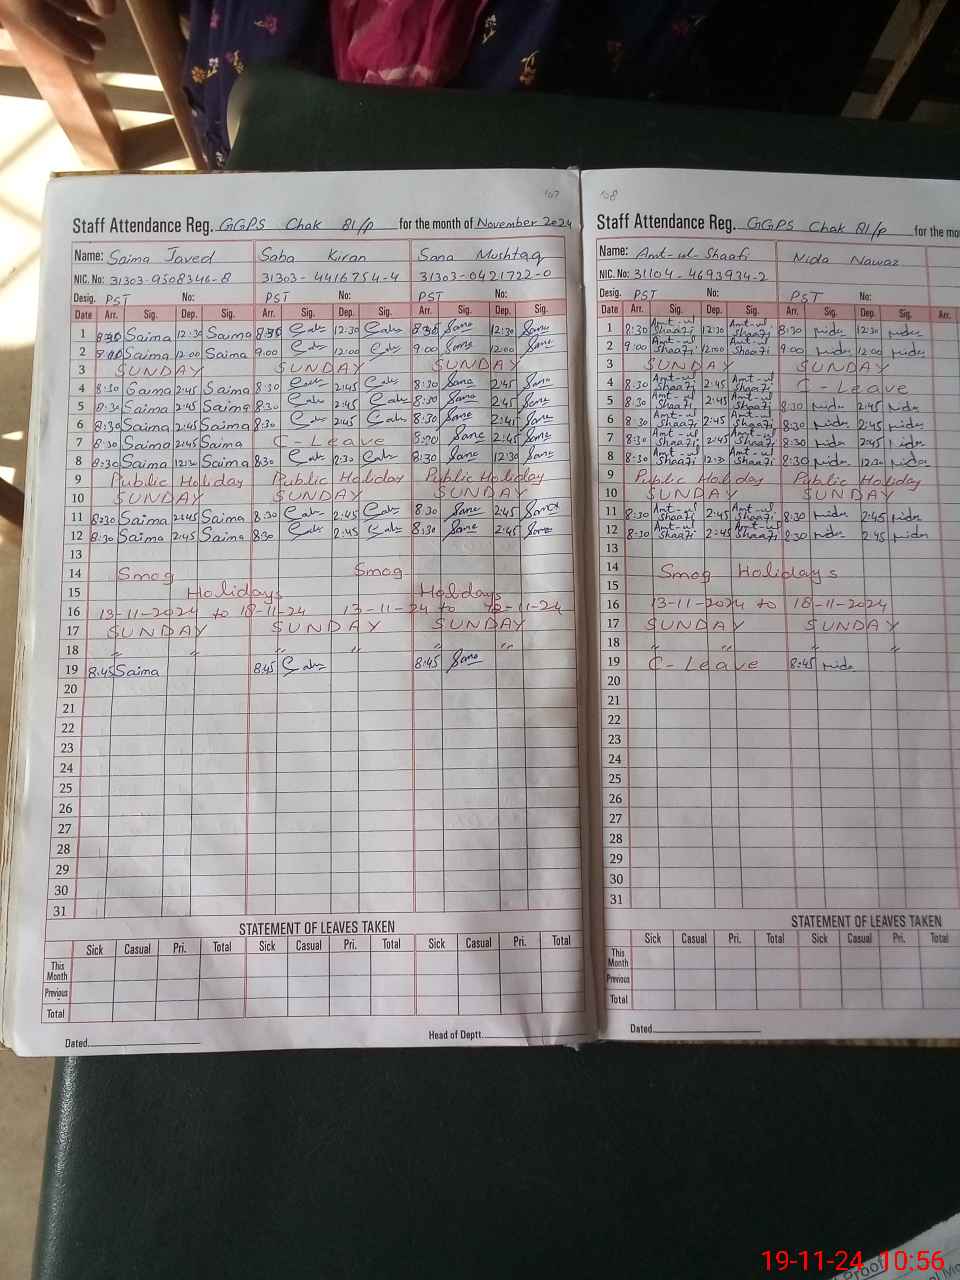 107
Staff Attendance Reg. GGPS Chak 81/P for the month of November 2024
Name: Saima Javed Saba Kiran Sana Mushtaq
NIC. No: 31303-9508346-8 31303-4416754-4 31303-0421722-0
Desig. PST No: PST No: PST
Date Arr. Sig. Dep. Sig. Arr. Sig. Dep. Sig. Arr. Sig. Dep. Sig.
1 8:30 Saima 12:30 Saima 8:30 12:30 8:30 Sana 12:30 Sana
2 9:00 Saima 12:00 Saima 9:00 12:00 9:00 Sana 12:00 Sana
3 SUNDAY SUNDAY SUNDAY
4 8:30 Saima 2:45 Saima 8:30 2:45 8:30 Sana 2:45 Sana
5 8:30 Saima 2:45 Saima 8:30 2:45 8:30 Sana 2:45 Sana
6 8:30 Saima 2:45 Saima 8:30 2:45 8:30 Sana Sana
7 8:30 Saima 2:45 Saima C-Leave Sana 2:45 Sana
8 8:30 Saima 12:30 Saima 8:30 8:30 Sana 12:30 Sana
9 Public Holiday Public Holiday Public Holiday
10 SUNDAY SUNDAY SUNDAY
11 8:30 Saima 2:45 Saima 8:30 2:45 8:30 Sana 2:45 Sana
12 8:30 Saima 2:45 Saima 8:30 2:45 8:30 Sana 2:45 Sana
13
14 Smog Smog
15 Holidays Holidays
16 13-11-2024 to 18-11-24 13-11-24 to
17 SUNDAY SUNDAY SUNDAY
18 " " " " "
19 8:45 Saima 8:45 8:45 Sana
20
21
22
23
24
25
26
27
28
29
30
31
STATEMENT OF LEAVES TAKEN
Sick Casual Pri. Total Sick Casual Pri. Total Sick Casual Pri. Total
This Month
Previous
Total
Dated Head of Deptt.
108
Staff Attendance Reg. GGPS Chak 81/P for the mo
Name: Amt-ul-Shaafi Nida Nawaz
NIC. No: 31104-4693934-2
Desig. PST No: PST
Date Arr. Sig. Dep. Sig. Arr. Sig. Dep. Sig. Arr.
1 8:30 Amt-ul Shaafi 12:30 Amt-ul Shaafi 8:30 Nida 12:30 Nida
2 9:00 Amt-ul Shaafi 12:00 Amt-ul Shaafi 9:00 Nida 12:00 Nida
3 SUNDAY SUNDAY
4 8:30 Amt-ul Shaafi 2:45 Amt-ul Shaafi C-Leave
5 8:30 Amt-ul Shaafi 2:45 Amt-ul Shaafi 8:30 Nida 2:45 Nida
6 8:30 Amt-ul Shaafi 2:45 Amt-ul Shaafi 8:30 Nida 2:45 Nida
7 8:30 Amt-ul Shaafi 2:45 Amt-ul Shaafi 8:30 Nida 2:45 Nida
8 8:30 Amt-ul Shaafi 12:30 Amt-ul Shaafi 8:30 Nida 12:30 Nida
9 Public Holiday Public Holiday
10 SUNDAY SUNDAY
11 8:30 Amt-ul Shaafi 2:45 Amt-ul Shaafi 8:30 Nida 2:45 Nida
12 8:30 Amt-ul Shaafi 2:45 Amt-ul Shaafi 8:30 Nida 2:45 Nida
13
14 Smog Holidays
15
16 13-11-2024 to 18-11-2024
17 SUNDAY SUNDAY
18 " " " "
19 C-Leave 8:45 Nida
20
21
22
23
24
25
26
27
28
29
30
31
STATEMENT OF LEAVES TAKEN
Sick Casual Pri. Total Sick Casual Pri. Total
This Month
Previous
Total
Dated
19-11-24 10:56